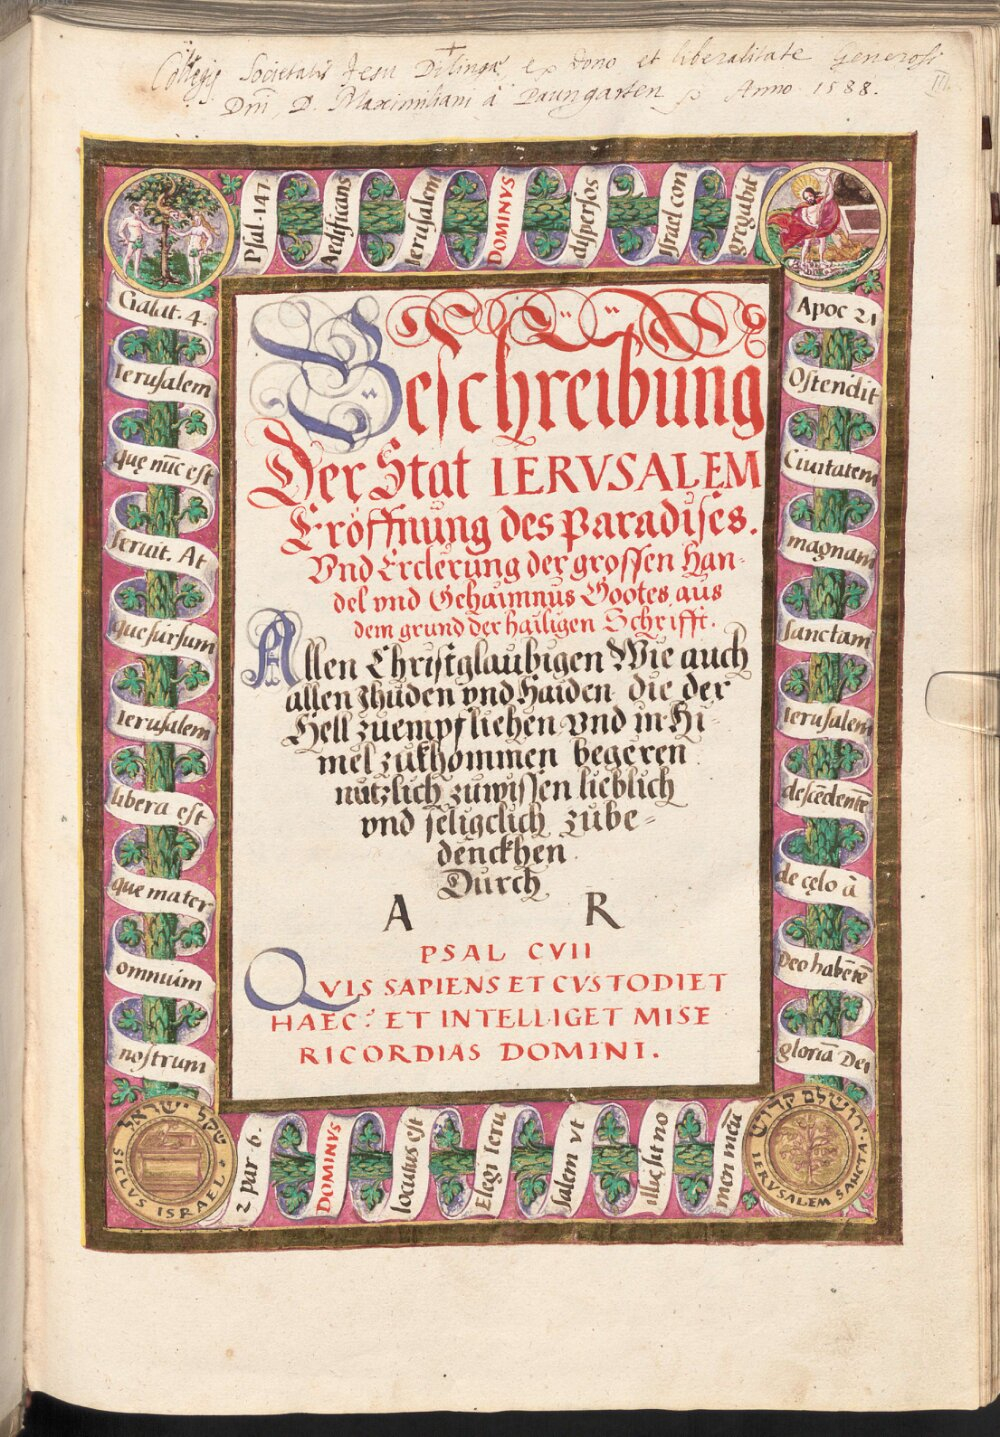 Collegij Societatis Jesu Dilingæ, ex dono et liberalitate Generosi
Dm̃i, D. Maximiliani à Paungarten Anno 1588.
III.
Psal. 147.
Aedificans
Ierusalem
DOMINVS
dispersos
Israel con
gregabit
Galat. 4.
Ierusalem
quę nũc est
seruit. At
que sursum
Ierusalem
libera est
que mater
omnium
nostrum
Apoc 21
Ostendit
Ciuitatem
magnam
sanctam
Ierusalem
descẽdentẽ
de cęlo à
Deo habẽtẽ
gloriã Dei
Beschreibung
Der Stat IERVSALEM
Eröffnung des Paradises.
Vnd Erclerung der grossen Han-
del vnd Gehaimnus Gootes, aus
dem grund der hailigen Schrifft.
Allen Christglaubigen Wie auch
allen Jhuden vnd Haiden die der
Hell zuempfliehen vnd in Hi-
mel zukhommen begeren
nutzlich zuwissen lieblich
vnd seligclich zube-
denckhen.
Durch
A R
PSAL CVII
QVIS SAPIENS ET CVSTODIET
HAEC? ET INTELLIGET MISE
RICORDIAS DOMINI.
שקל ישראל
SICLVS ISRAEL
2 par. 6.
DOMINVS
locutus est
Elegi Ieru
salem vt
illįc sit no
men meũ
ירושלם קדוש
IERVSALEM SANCTA